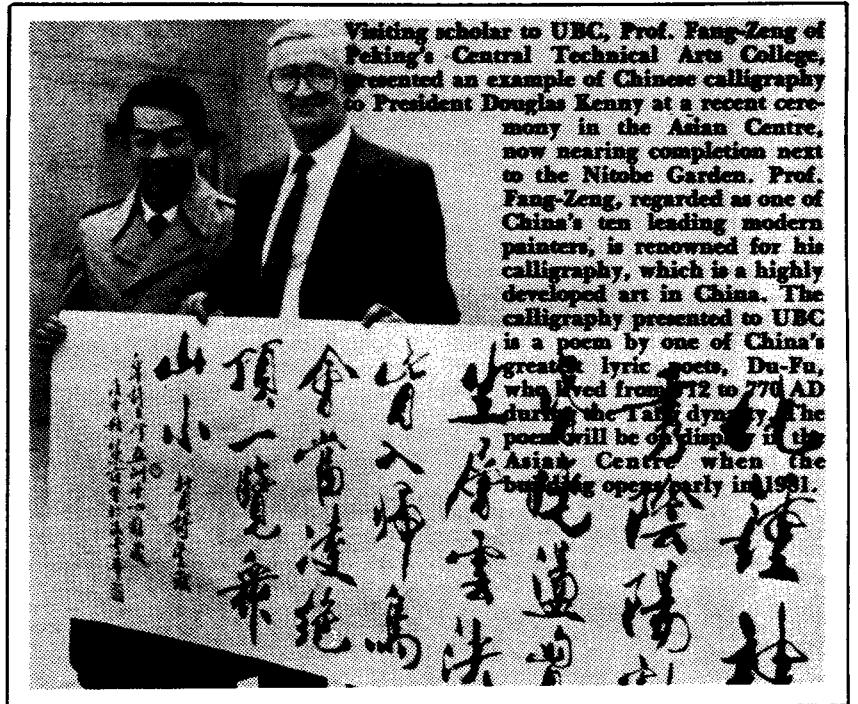 Visiting scholar to UBC, Prof. Fang-Zeng of
Peking's Central Technical Arts College,
presented an example of Chinese calligraphy
to President Douglas Kenny at a recent cere-
mony in the Asian Centre,
now nearing completion next
to the Nitobe Garden. Prof.
Fang-Zeng, regarded as one of
China's ten leading modern
painters, is renowned for his
calligraphy, which is a highly
developed art in China. The
calligraphy presented to UBC
is a poem by one of China's
greatest lyric poets, Du-Fu,
who lived from 712 to 770 AD
during the Tang dynasty. The
poem will be on display in the
Asian Centre when the
building opens early in 1981.
化鍾神
秀陰陽割
曉盪胸
生層雲決
眥入歸鳥
會當凌絕
頂一覽眾
山小